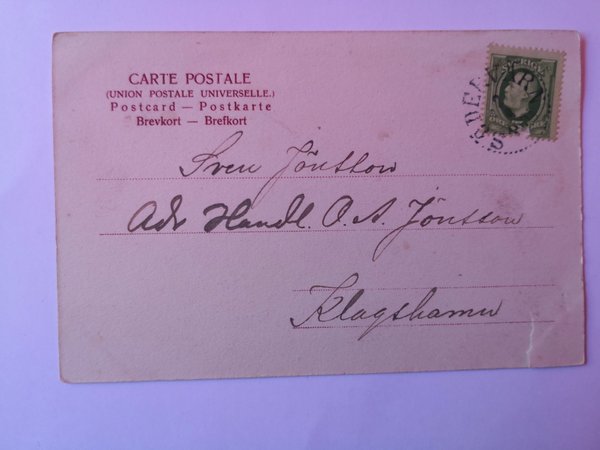 CARTE POSTALE
(UNION POSTALE UNIVERSELLE.)
Postcard — Postkarte
Brevkort — Brefkort
Sven Jönsson
Adr Handl. O. A. Jönsson
Klagshamn
SVERIGE